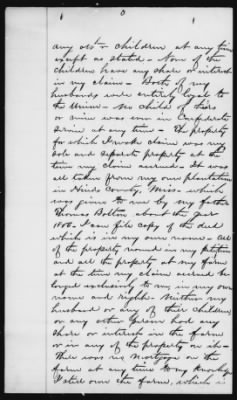 any other children at any time
except as stated - None of the
children have any share or interest
in my claim - Both of my
husbands were entirely loyal to
the Union - No child of theirs
or mine was ever in Confederate
service at any time - The property
for which I make claim was my
sole and separate property at the
time my claim accrued. It was
all taken from my own plantation
in Hinds County, Miss. which
was given to me by my father
Thomas Bolton about the year
I can file copy of the deed
which is in my own name - All
of the property named in my petition
and all the property at my farm
at the time my claim accrued be
longed exclusively to me in my own
name and right. Neither my
husband or any of their children
or any other person had any
share or interest in the farm
or in any of the property on it -
There was no mortgage on the
farm at any time to my knowledge
I still own the farm, which is